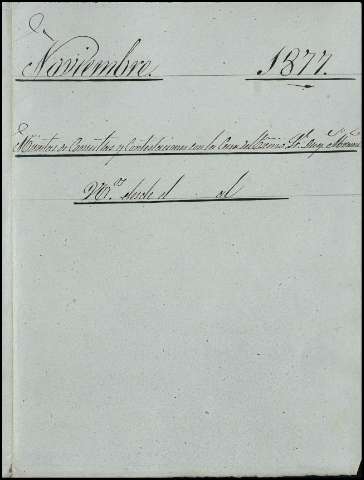 Noviembre. 1877.
Minutas de Consultas y Contestaciones con la Casa del Excmo. Sr.
N.os desde el al